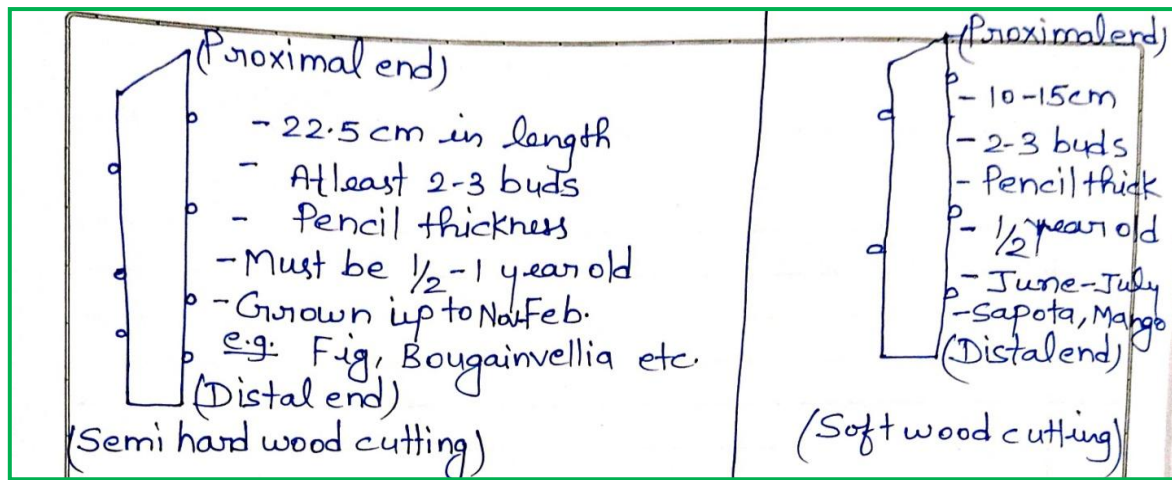 (Proximal end)
- 22.5 cm in length
- Atleast 2-3 buds
- Pencil thickness
- Must be 1/2 - 1 year old
- Grown up to Nov-Feb.
e.g. Fig, Bougainvellia etc.
(Distal end)
(Semi hard wood cutting)
(Proximal end)
- 10-15cm
- 2-3 buds
- Pencil thick
- 1/2 year old
- June-July
- Sapota, Mango
(Distal end)
(Soft wood cutting)